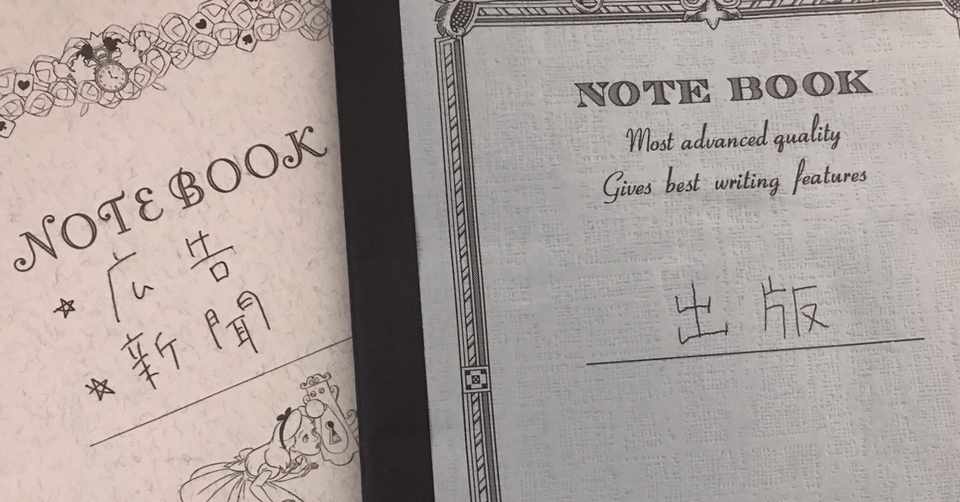 NOTE BOOK
☆ 広告
☆ 新聞
NOTE BOOK
Most advanced quality
Gives best writing features
出版